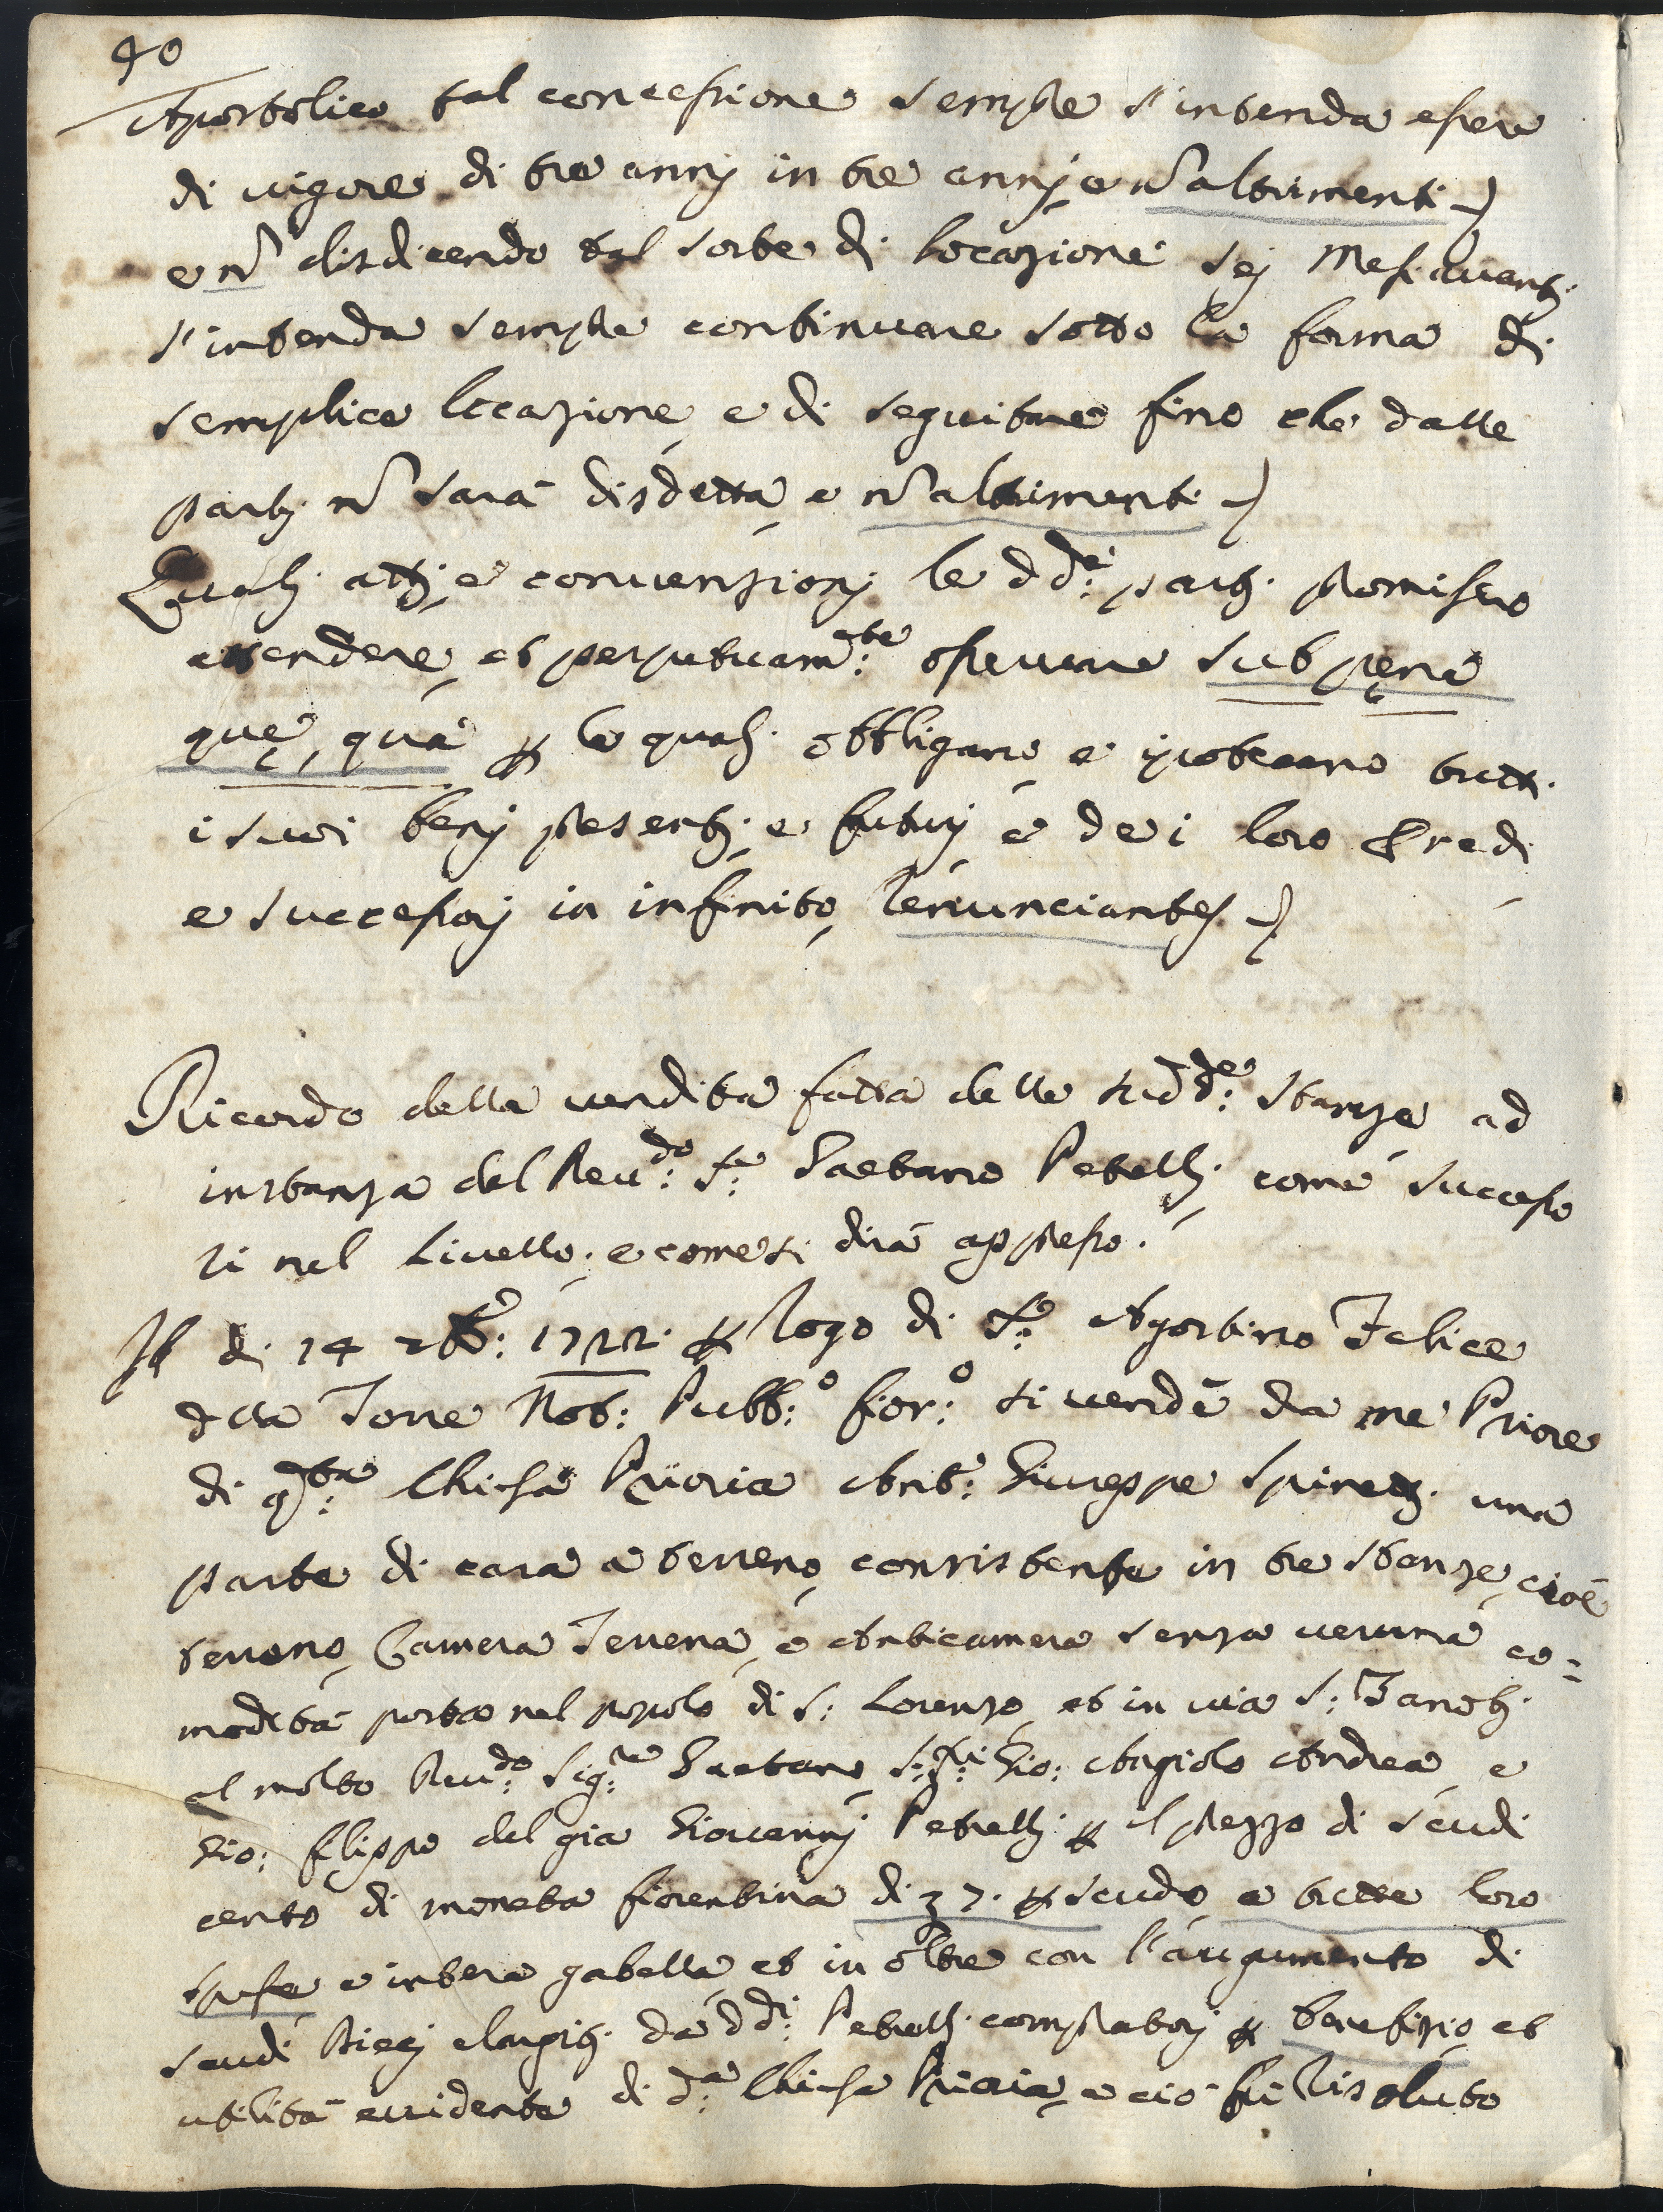 40
Apostolico tal concessione sempre s'intenda essere
di vigore di tre annj in tre annj, e nõ altrimenti -)
e nõ disdicendo tal sorte di locazione sej Mesi avantj
s'intenda sempre continuare sotto la forma di
semplice locazione, e di seguitare fino che dalle
partj nõ sarà disdetta, e nõ altrimenti -)
Qualj attj, e convenzionj le dd:e partj promisero
attendere, et perpetuam:nte osservare sub pena
que, qua p le qualj obbligano, e ipotecano tutti
i suoi benj presentj, e futurj, e de i loro Eredi
e successorj in infinito, renunciantes -)
Ricordo della vendita fatta delle sudd:e stanze ad
instanza del Reu:do S:e Gaetano Petrellj, come successo
ri nel Livello, e come si dirà appresso.
Il di 14 7b:e 1722. p rogo di S:e Agostino Felice
della Torre Not: Pubb:o fior:o si vendé da me Priore
di q:sta Chiesa Prioria Ant:o Giuseppe Spinettj una
parte di casa a terreno, consistente in tre stanze, cioè
terreno, Camera Terrena, e Anticamera senza veruna co=
modità posta nel popolo di S: Lorenzo, et in via S: Zanobj
al molto Reu:do Sig:re Gaetano, S:ri Gio: Agniolo Andrea, e
Gio: filippo del già Giovannj Petrellj p il prezzo di scudi
cento di moneta fiorentina di £ 7. p scudo, a tutte loro
spese e intera gabella, et in oltre con l'augumento di
scudi diecj elargitj da dd:i Petrellj compratorj p benefizio, et
utilità evidente di d:a Chiesa Prioria, e ciò fù risoluto